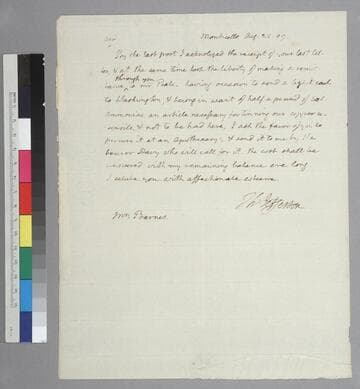 Sir
Monticello Aug. 25. 09.
By the last post I acknoleged the receipt of your last let
-ter, & at the same time took the liberty of making a remit
through you
-tance, to mr Peale. having occasion to send a light cart
to Washington, & being in want of half a pound of Sal
Ammoniac an article necessary for tinning our copper u-
-tensils, & not to be had here, I ask the favor of you to
procure it at an Apothecary's & send it to me by the
bearer Davy who will call for it. the cost shall be
answered with my remaining balance ere long
I salute you with affectionate esteem
Th: Jefferson
Mr. Barnes